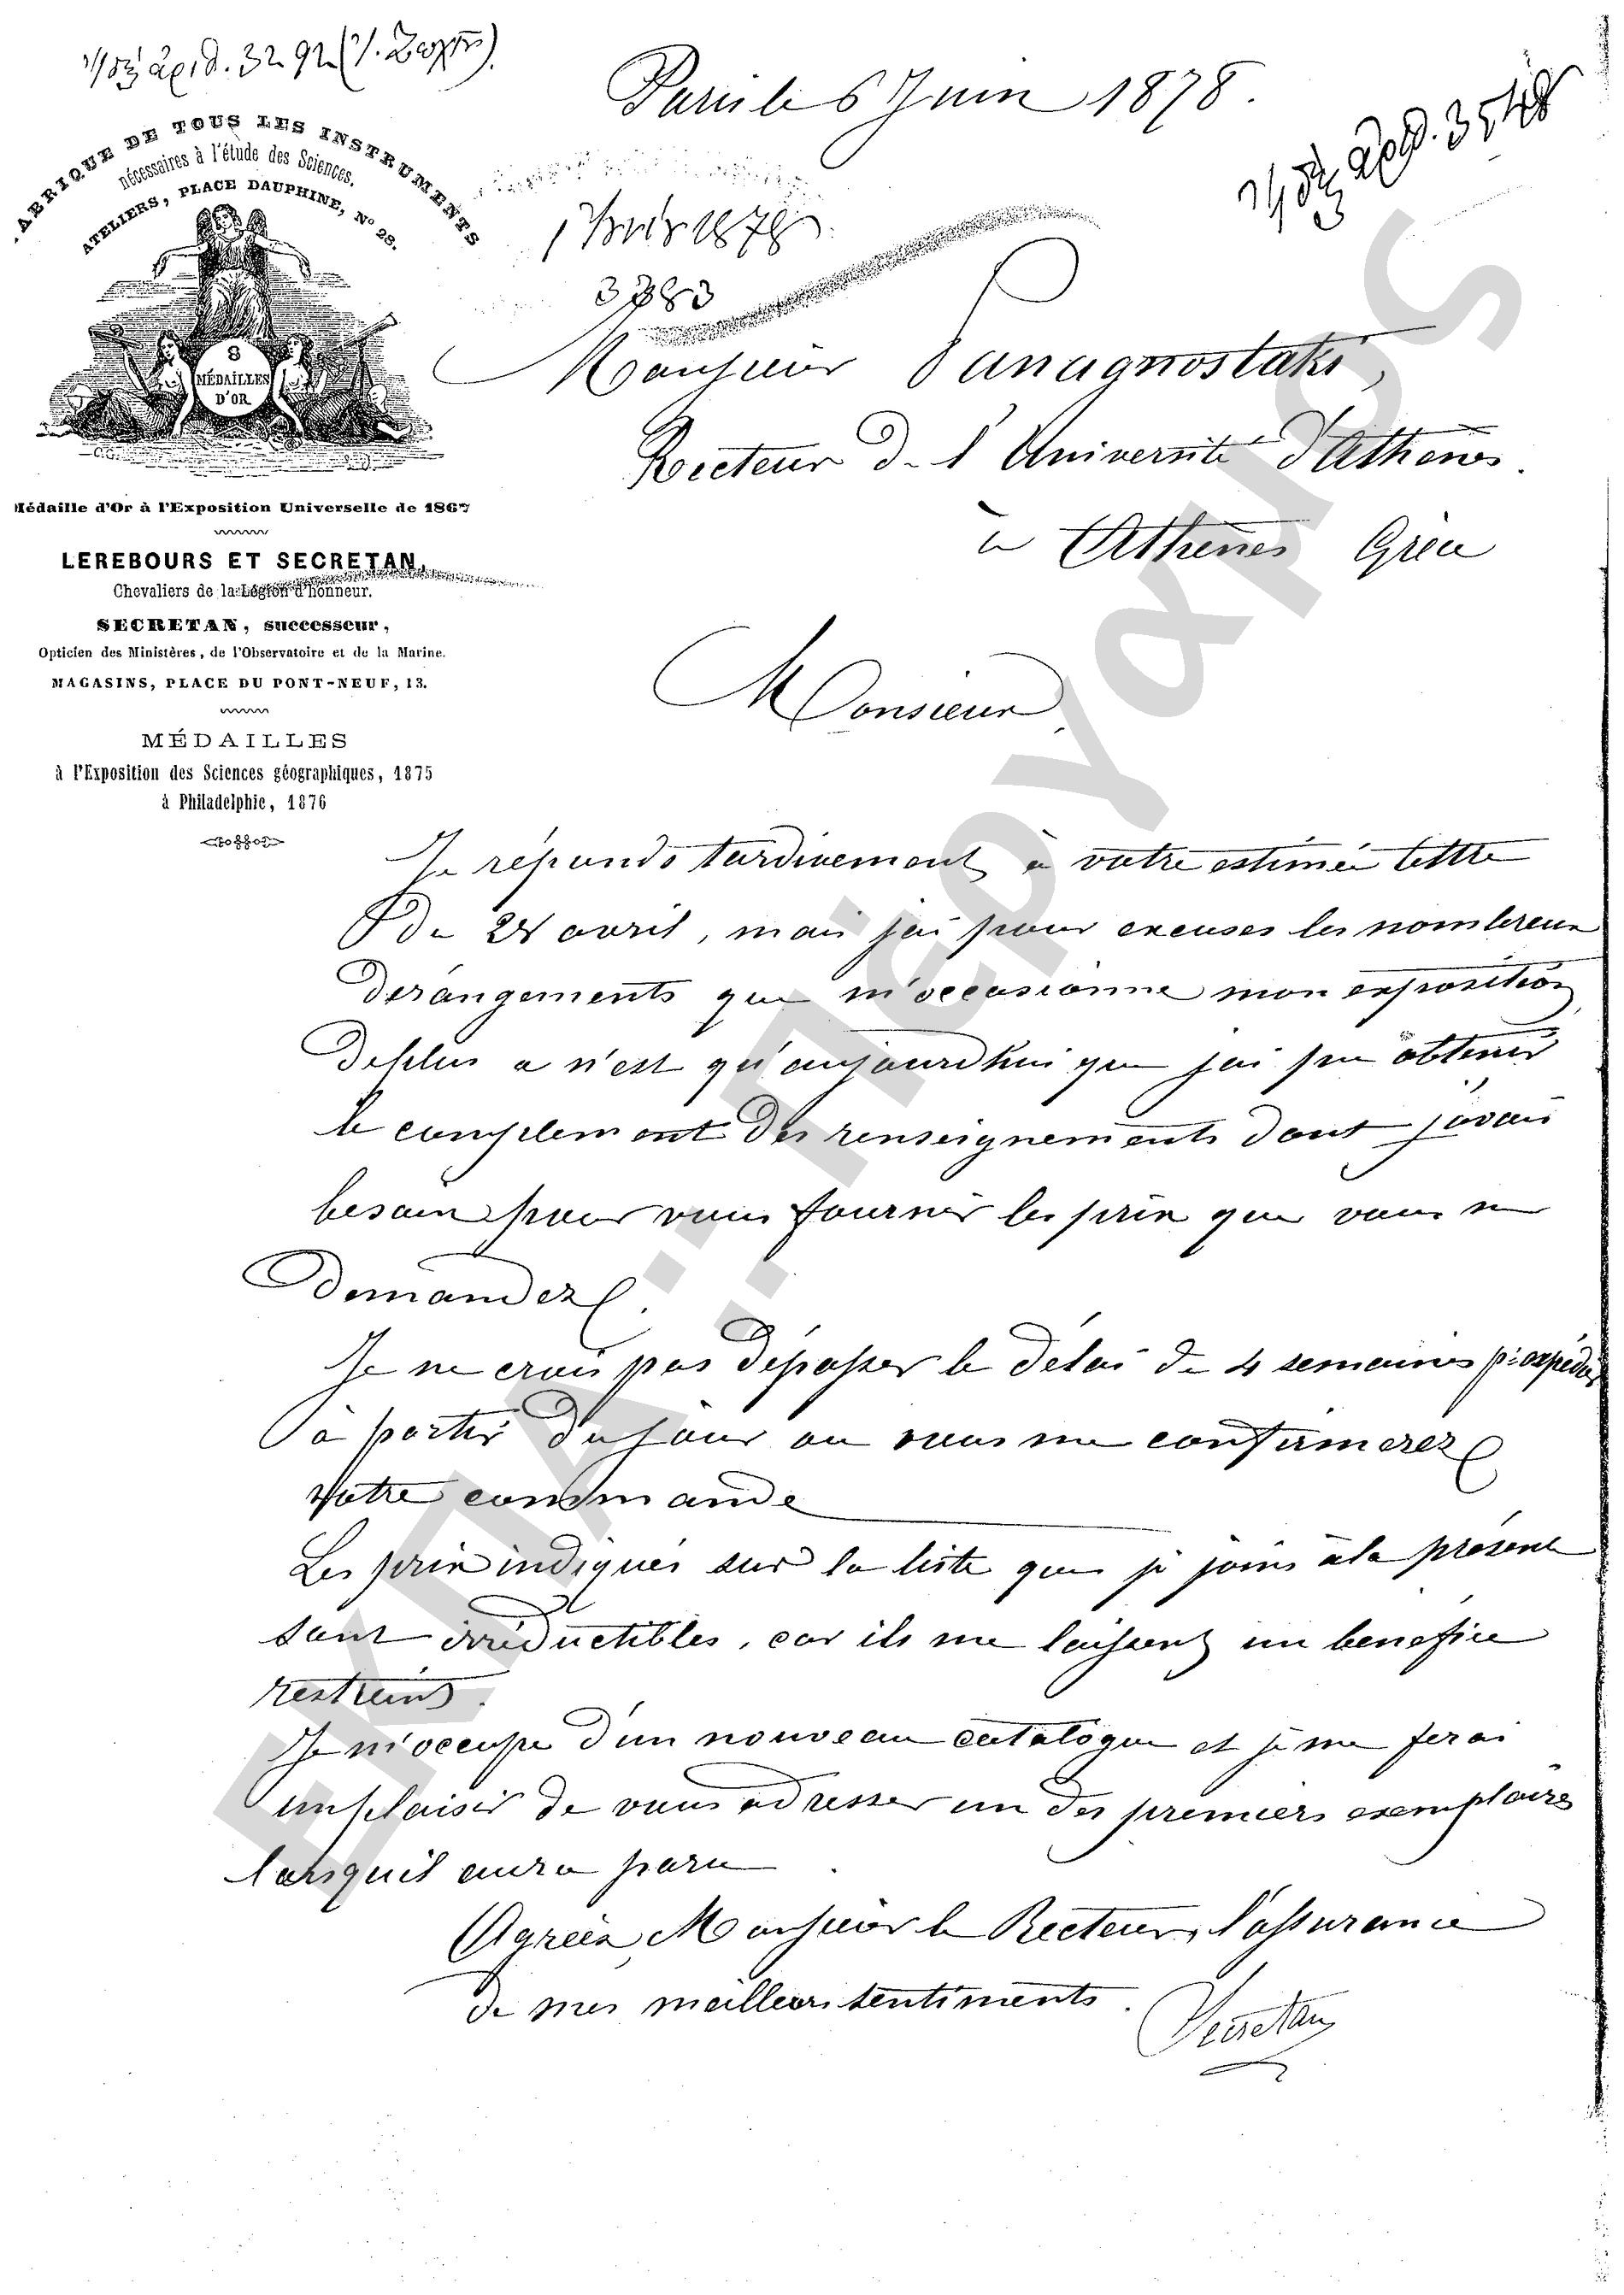 Paris le 6 Juin 1878.
FABRIQUE DE TOUS LES INSTRUMENTS
nécessaires à l'étude des Sciences.
ATELIERS, PLACE DAUPHINE, N° 28.
8
MÉDAILLES
D'OR
Médaille d'Or à l'Exposition Universelle de 1867
LEREBOURS ET SECRETAN,
Chevaliers de la Légion d'honneur.
SECRETAN, successeur,
Opticien des Ministères, de l'Observatoire et de la Marine.
MAGASINS, PLACE DU PONT-NEUF, 13.
MÉDAILLES
à l'Exposition des Sciences géographiques, 1875
à Philadelphie, 1876
1878
3783
Monsieur Panagnostaki,
Recteur de l'Université d'Athènes.
à Athènes Grèce
Monsieur,
Je réponds tardivement à votre estimée lettre
de avril, mais j'ai pour excuses les nombreux
dérangements que m'occasionne mon exposition,
deplus ce n'est qu'aujourdhui que j'ai pu obtenir
le complement des renseignements dont j'avais
besoin pour vous fournir les prix que vous me
demandez.
Je ne crois pas dépasser le délai de 4 semaines pr expédier
à partir du jour ou vous me confirmerez
votre commande
Les prix indiqués sur la liste que je joins à la présente
sont irréductibles, car ils me laissent un benefice
restreint.
Je m'occupe d'un nouveau catalogue et je me ferai
un plaisir de vous adresser un des premiers exemplaires
lorsquil aura paru
Agréez, Monsieur le Recteur, l'assurance
de mes meilleurs sentiments.
Secretan
ΕΚΠΑ:: Πέργαμος